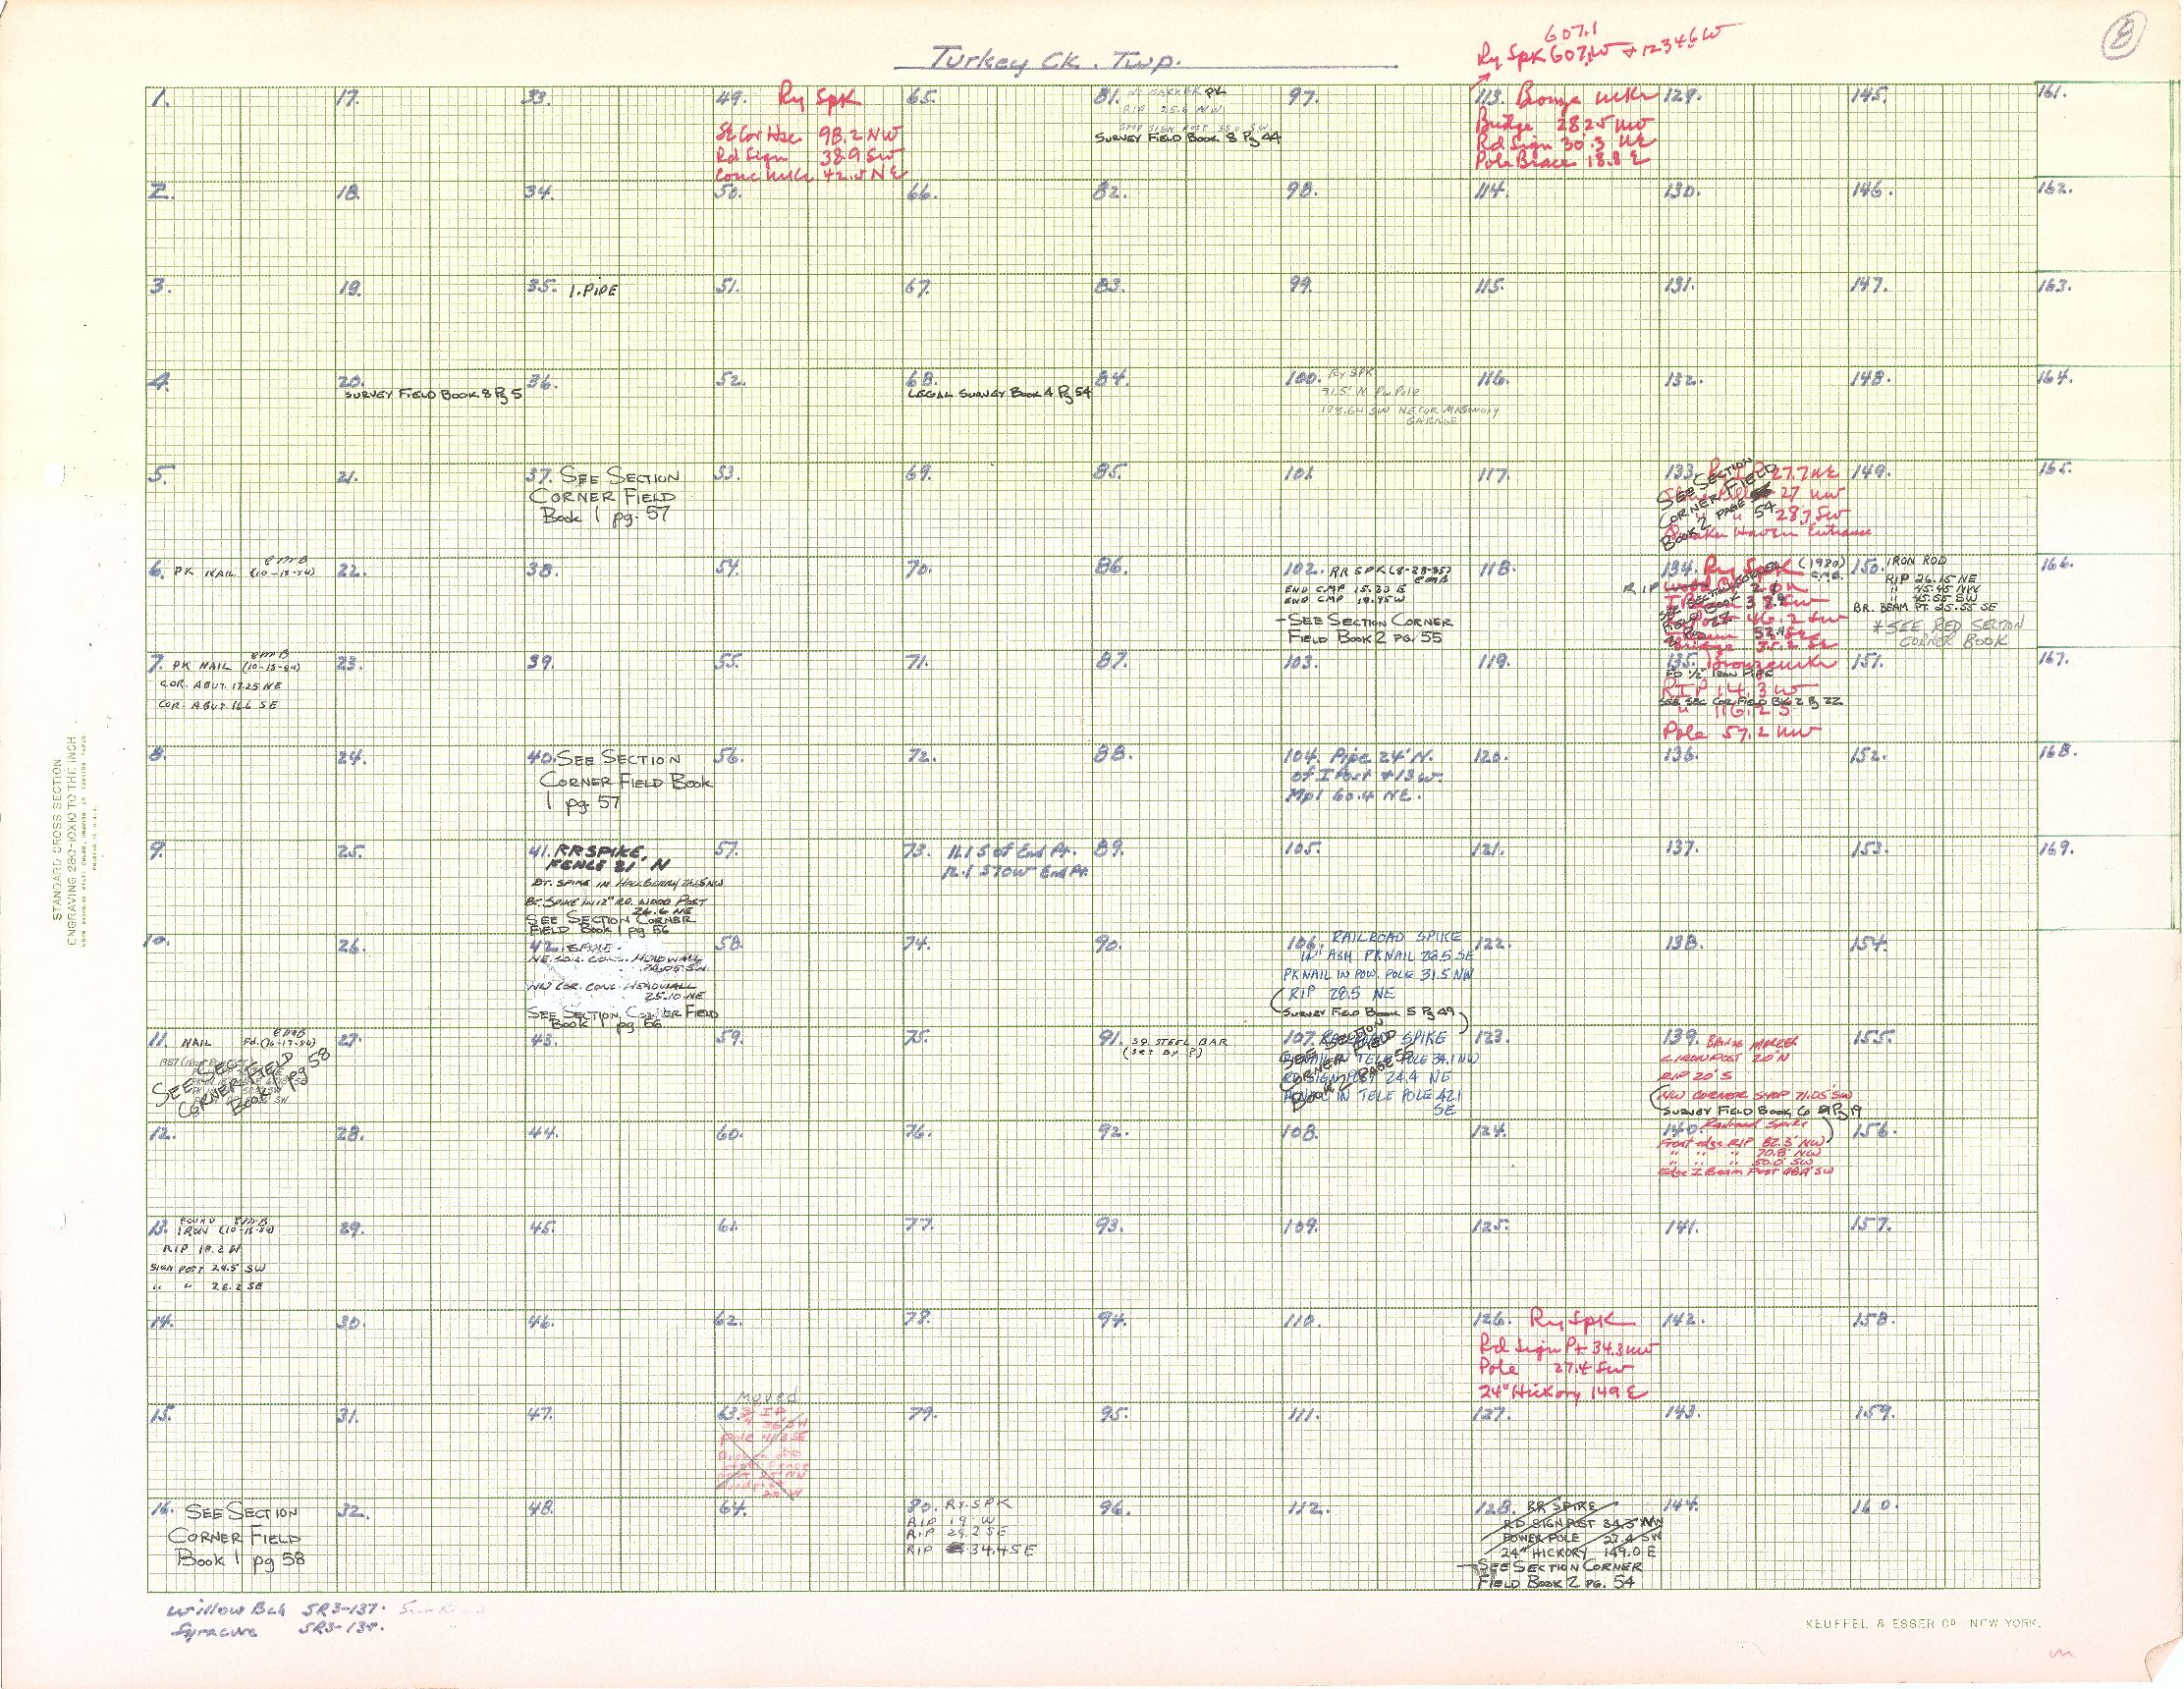 607.1
Ry Spk 607.1W + 1234.6W
8
Turkey Ck. Twp.
1.
17.
33.
49. Ry Spk
SE Cor Hse 98.2 NW
Rd Sign 38.9 SW
Conc Mkr 42.5 NE
65.
81. MARKER PK
RIP 25.6 NW
STOP SIGN POST SW
SURVEY FIELD BOOK 8 Pg 44
97.
113. Bronze Mkr
Bridge 28.25 NW
Rd Sign 30.3 NE
Pole Brace 18.8 E
129.
145.
161.
2.
18.
34.
50.
66.
82.
98.
114.
130.
146.
162.
3.
19.
35. I. PIPE
51.
67.
83.
99.
115.
131.
147.
163.
4.
20.
SURVEY FIELD BOOK 8 Pg 5
36.
52.
68.
LEGAL SURVEY BOOK 4 Pg 54
84.
100. Ry SPK
31.5' N Pw Pole
178.64 SW NE COR MASONARY
GARAGE
116.
132.
148.
164.
5.
21.
37. SEE SECTION
CORNER FIELD
Book 1 pg. 57
53.
69.
85.
101.
117.
133. 27.7 NE
27 NW
28.7 SW
Quaker Haven Entrance
SEE SECTION
CORNER FIELD
BOOK 2 PAGE 54
149.
165.
6. PK NAIL (10-15-84) EMB
22.
38.
54.
70.
86.
102. RR SPK (8-28-85)
EMB
END CMP 15.33 E
END CMP 19.45 W
-SEE SECTION CORNER
FIELD BOOK 2 PG. 55
118.
134. Ry Spk (1980)
RIP
46.2 SW
Bridge 35.2 SE
150. IRON ROD
RIP 26.15 NE
" 45.45 NW
" 45.55 SW
BR. BEAM PT. 25.55 SE
*SEE RED SECTION
CORNER BOOK
166.
7. PK NAIL (10-15-84) EMB
COR. ABUT. 17.25 NE
COR. ABUT. 16.6 SE
23.
39.
55.
71.
87.
103.
119.
135. Bronze Mkr
FD 1/2" IRON PIPE
RIP 14.3 W
SEE SEC COR FIELD BK 2 Pg 22
" 116.2 S
Pole 57.2 NW
151.
167.
8.
24.
40. SEE SECTION
CORNER FIELD Book
1 pg. 57
56.
72.
88.
104. Pipe 24' N.
of I Post + 13 W.
Mpl 60.4 NE.
120.
136.
152.
168.
9.
25.
41. RR SPIKE,
FENCE 21' N
BT. SPIKE IN HACKBERRY 26.15 NW
BT. SPIKE IN 12" RD. WOOD POST
26.6 NE
SEE SECTION CORNER
FIELD Book 1 pg 56
57.
73. 11.1 S of End Pt.
12.1 S70W End Pt.
89.
105.
121.
137.
153.
169.
10.
26.
42. SPIKE
NE. COR. CONC. HEADWALL
26.05 SW
NW COR. CONC. HEADWALL
25.10 NE
SEE SECTION CORNER FIELD
Book 1 pg 56
58.
74.
90.
106. RAILROAD SPIKE
14" ASH PK NAIL 28.5 SE
PK NAIL IN POW. POLE 31.5 NW
RIP 28.5 NE
SURVEY FIELD BOOK 5 Pg 49
122.
138.
154.
11. NAIL Fd. (10-17-84) EMB
SEE SEC.
CORNER FIELD
Book 1 pg 58
27.
43.
59.
75.
91. SQ. STEEL BAR
(SET BY P)
107. RAILROAD SPIKE
PK NAIL IN TELE POLE 34.1 NW
RD SIGN POST 24.4 NE
PK NAIL IN TELE POLE 42.1
SE
SEE SECTION
CORNER FIELD
BOOK 2 PAGE 55
123.
139. Bronze MARKER
IRON POST 20' N
RIP 20' S
NW CORNER SHOP 71.05' SW
SURVEY FIELD BOOK 6 Pg 19
155.
12.
28.
44.
60.
76.
92.
108.
124.
140. Railroad Spike
Front edge RIP 82.3' NW
" " " 70.8' NW
" " " 50.0' SW
Edge I Beam Post 48.9' SW
156.
13. FOUND IRON (10-15-84) EMB
RIP 18.2 W
SIGN POST 24.5 SW
" " 26.2 SE
29.
45.
61.
77.
93.
109.
125.
141.
157.
14.
30.
46.
62.
78.
94.
110.
126. Ry Spk
Rd Sign Pt 34.3 NW
Pole 27.4 SW
24" Hickory 149 E
142.
158.
15.
31.
47.
MOVED
63.
Pole 41.3 SE
79.
95.
111.
127.
143.
159.
16. SEE SECTION
CORNER FIELD
Book 1 pg 58
32.
48.
64.
80. Ry. SPK
RIP 19' W
RIP 29.2 SE
RIP 34.4 SE
96.
112.
128. RR SPIKE
RD SIGN POST 34.3 NW
POWER POLE 27.4 SW
24" HICKORY 149.0 E
SEE SECTION CORNER
FIELD BOOK 2 PG. 54
144.
160.
Willow Bch SR3-137.
Syracuse SR3-134.
STANDARD CROSS SECTION
ENGRAVING 280-10X10 TO THE INCH
KEUFFEL & ESSER CO. NEW YORK.